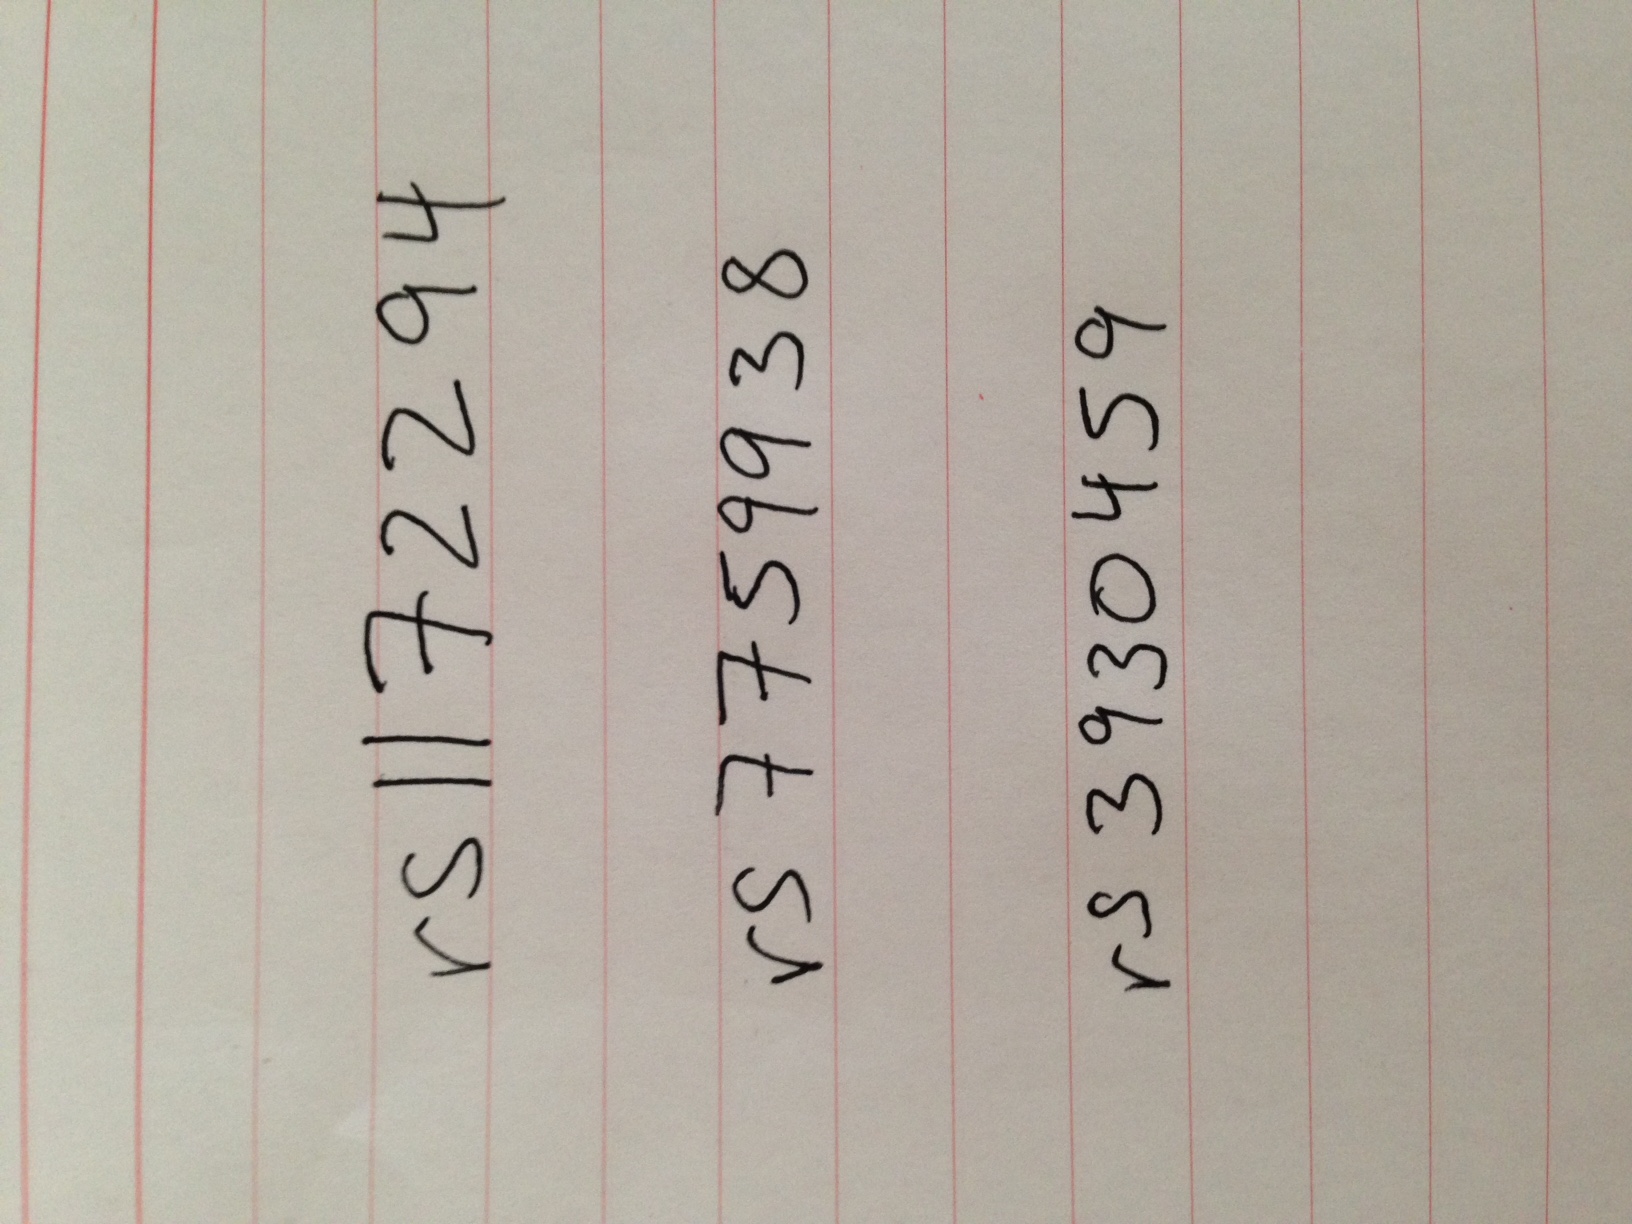 rs1172294
rs7759938
rs3930459